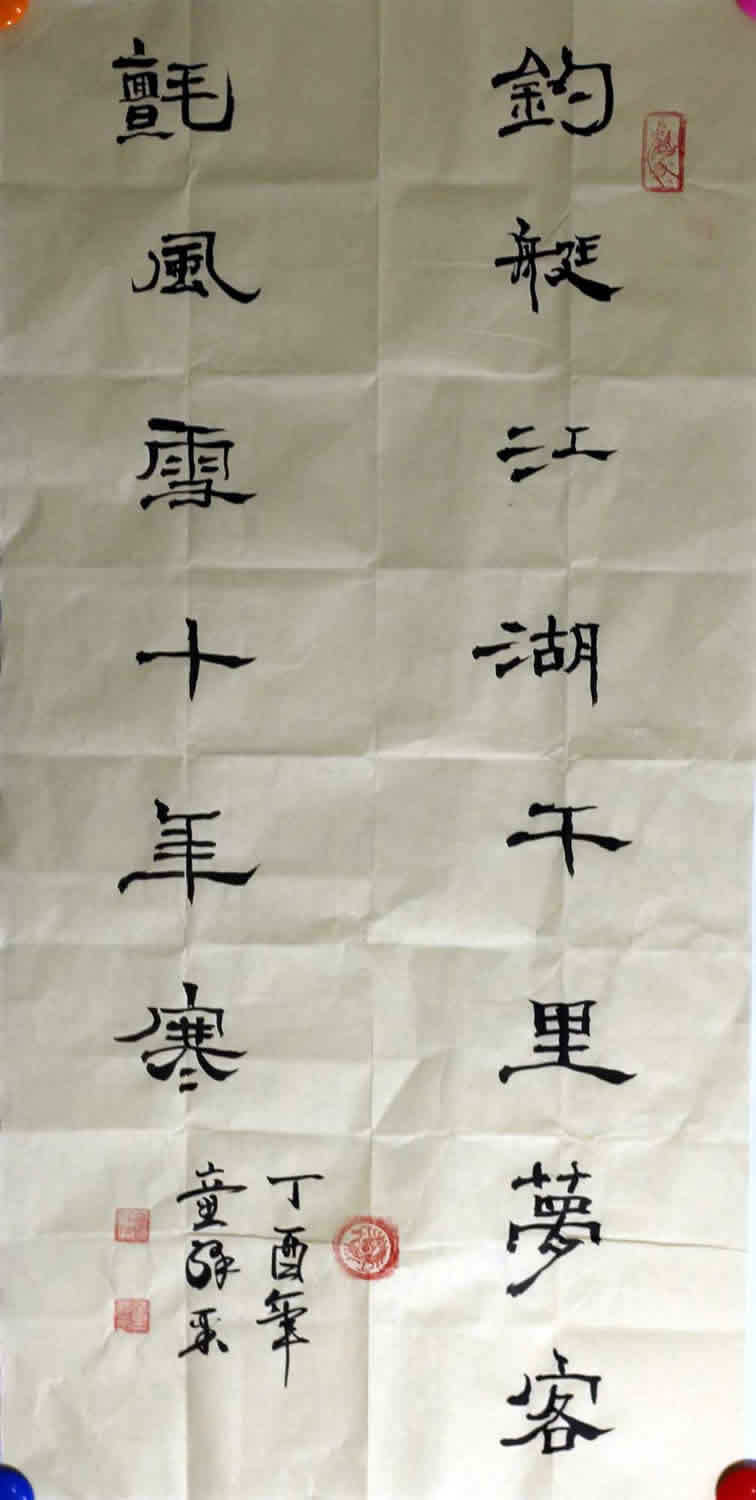 釣艇江湖午里夢客
氈風雪十年寒
丁酉年
童